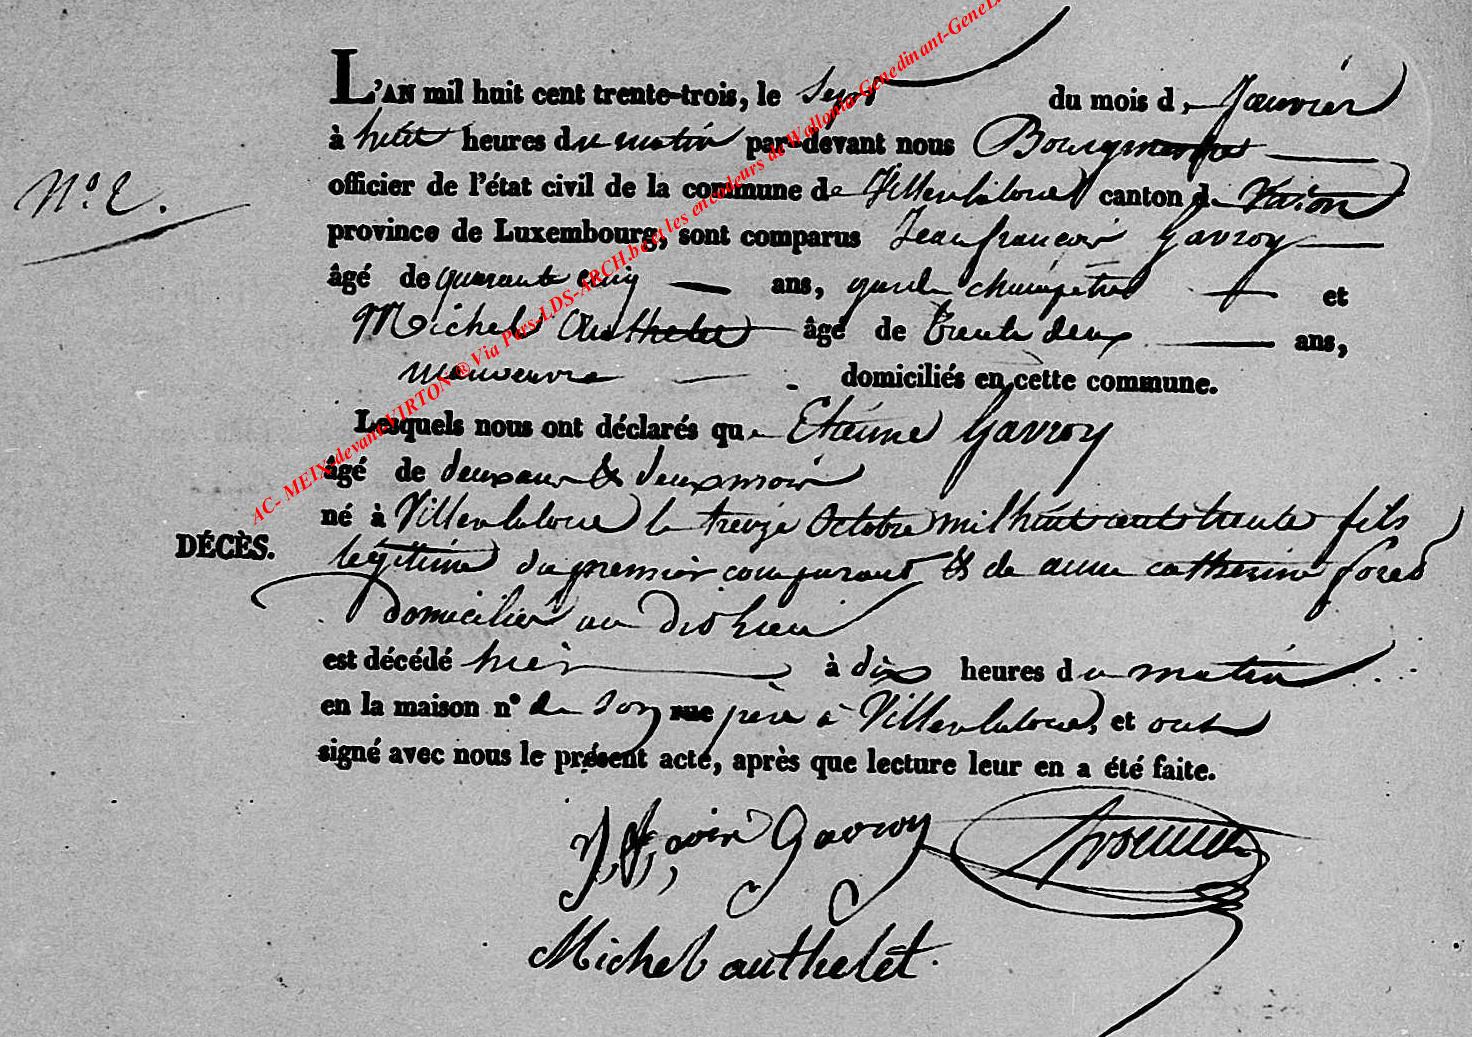 L'AN mil huit cent trente-trois, le Sept du mois de Janvier
à huit heures du matin par-devant nous Bourgmestre
N.° 2. officier de l'état civil de la commune de Villerslaloue canton de Virton
province de Luxembourg, sont comparus Jean françois Gavroy
âgé de quarante cinq ans, garde champêtre et
Michel Authelet âgé de trente deux ans,
manoeuvre domiciliés en cette commune.
Lesquels nous ont déclarés que Etienne Gavroy
âgé de deux ans & deux mois
né à Villerslaloue le treize Octobre mil huit cent trente fils
DÉCÈS. légitime du premier comparant & de anne catherine
domicilié au dit lieu
est décédé hier à dix heures du matin
en la maison n° de son rue père à Villerslaloue, et ont
signé avec nous le présent acte, après que lecture leur en a été faite.
Gavroy
Michel authelet.
AC- MEIX-devant-VIRTON ® Via Pars-LDS-ARCH.be et les encodeurs de Wallonia-Genedinant-GeneL